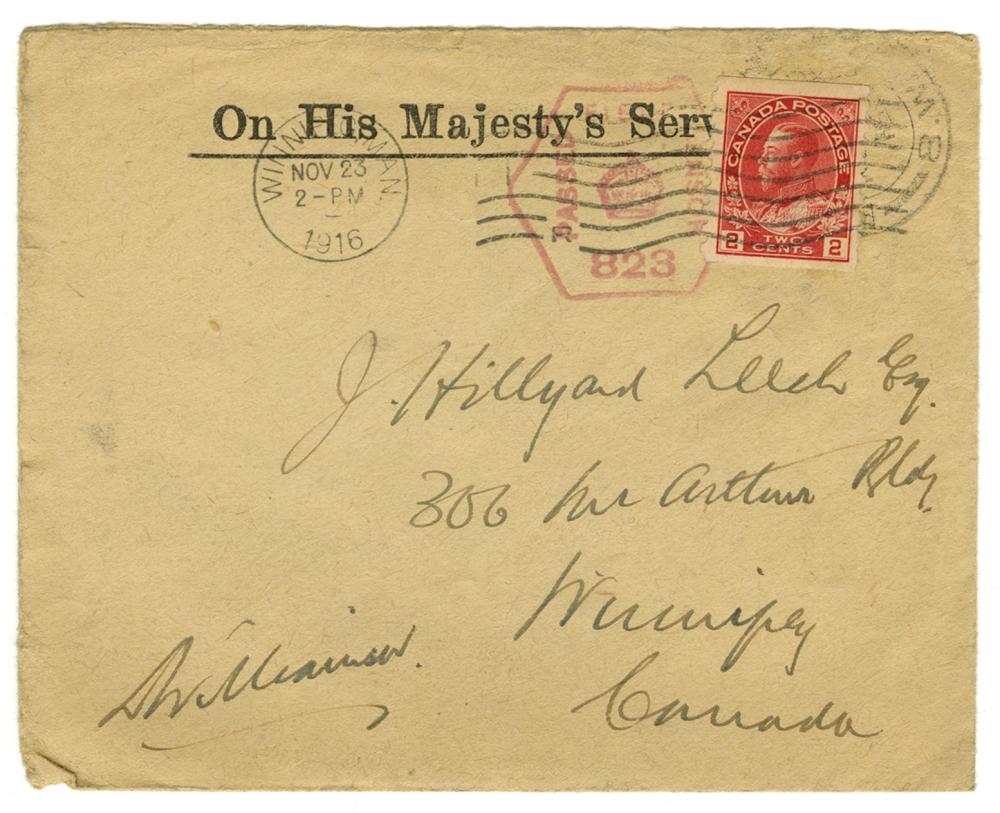 On His Majesty's Serv
WINNI MAN.
NOV 23
2-PM
1916
PASSED
823
CANADA POSTAGE
2 TWO CENTS 2
J. Hillyard Leech Esq.
306 Mc Arthur Bldg.
Winnipeg
Canada